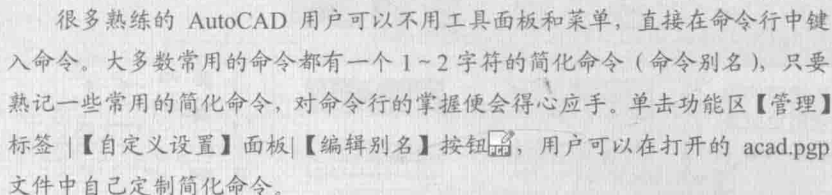 很多熟练的 AutoCAD 用户可以不用工具面板和菜单，直接在命令行中键
入命令。大多数常用的命令都有一个 1~2 字符的简化命令（命令别名），只要
熟记一些常用的简化命令，对命令行的掌握便会得心应手。单击功能区【管理】
标签 |【自定义设置】面板|【编辑别名】按钮，用户可以在打开的 acad.pgp
文件中自己定制简化命令。